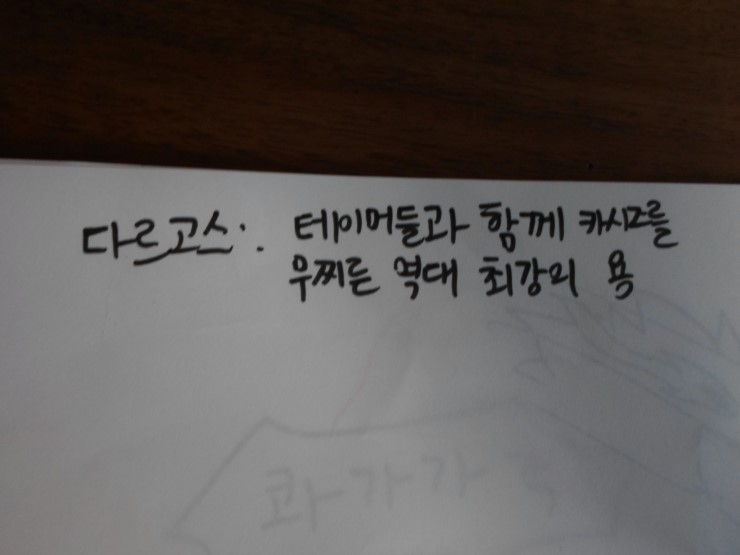 다르고스: 테이머들과 함께 카시크를
우찌른 역대 최강의 용
콰가가